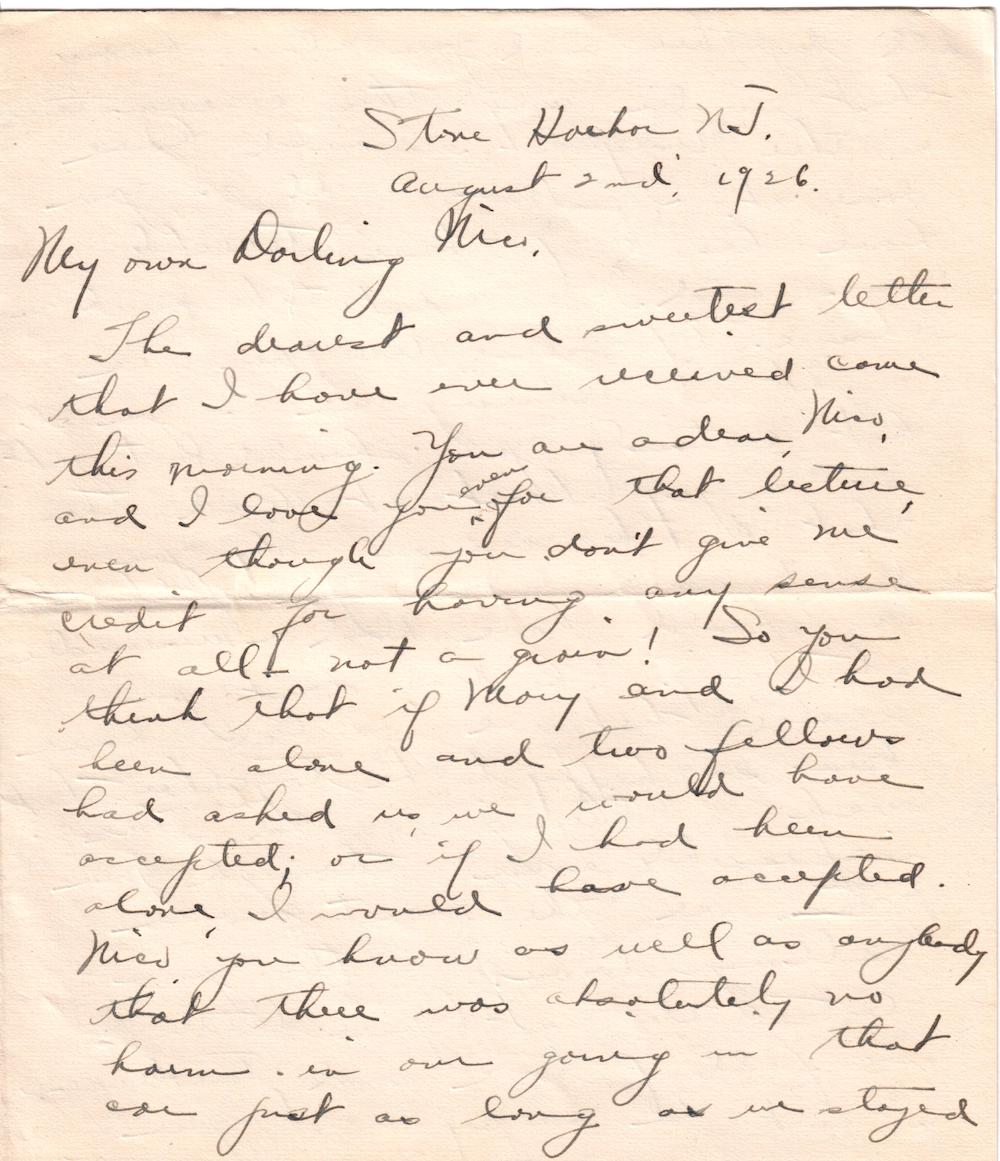 Stone Harbor N.J.
August 2nd, 1926.
My own Darling Nico,
The dearest and sweetest letter
that I have ever received came
this morning. You are a dear, Nico,
and I love you even for that lecture,
even though you don't give me
credit for having any sense
at all - not a grain! So you
think that if Mary and I had
been alone and two fellows
had asked us, we would have
accepted; or if I had been
alone, I would have accepted.
Nico, you know as well as anybody
that there was absolutely no
harm in our going in that
car just as long as we stayed